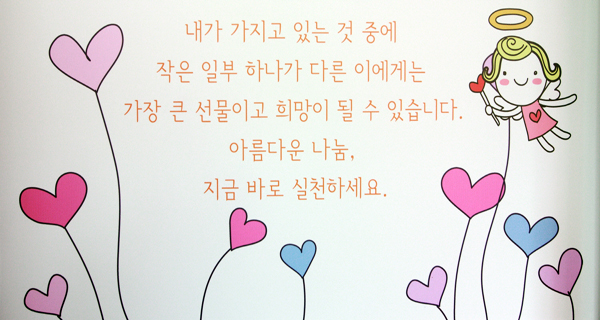 내가 가지고 있는 것 중에
작은 일부 하나가 다른 이에게는
가장 큰 선물이고 희망이 될 수 있습니다.
아름다운 나눔,
지금 바로 실천하세요.